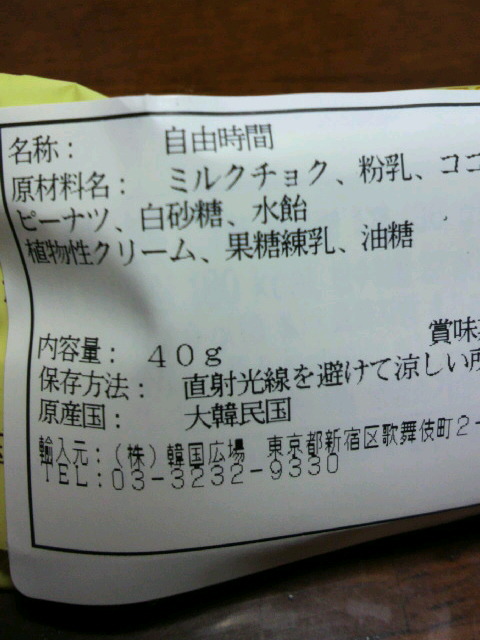 名称： 自由時間
原材料名： ミルクチョク、粉乳、ココ
ピーナツ、白砂糖、水飴
植物性クリーム、果糖練乳、油糖
賞味
内容量： ４０ｇ
保存方法： 直射光線を避けて涼しい所
原産国： 大韓民国
輸入元：（株）韓国広場 東京都新宿区歌舞伎町２－
ＴＥＬ：０３－３２３２－９３３０